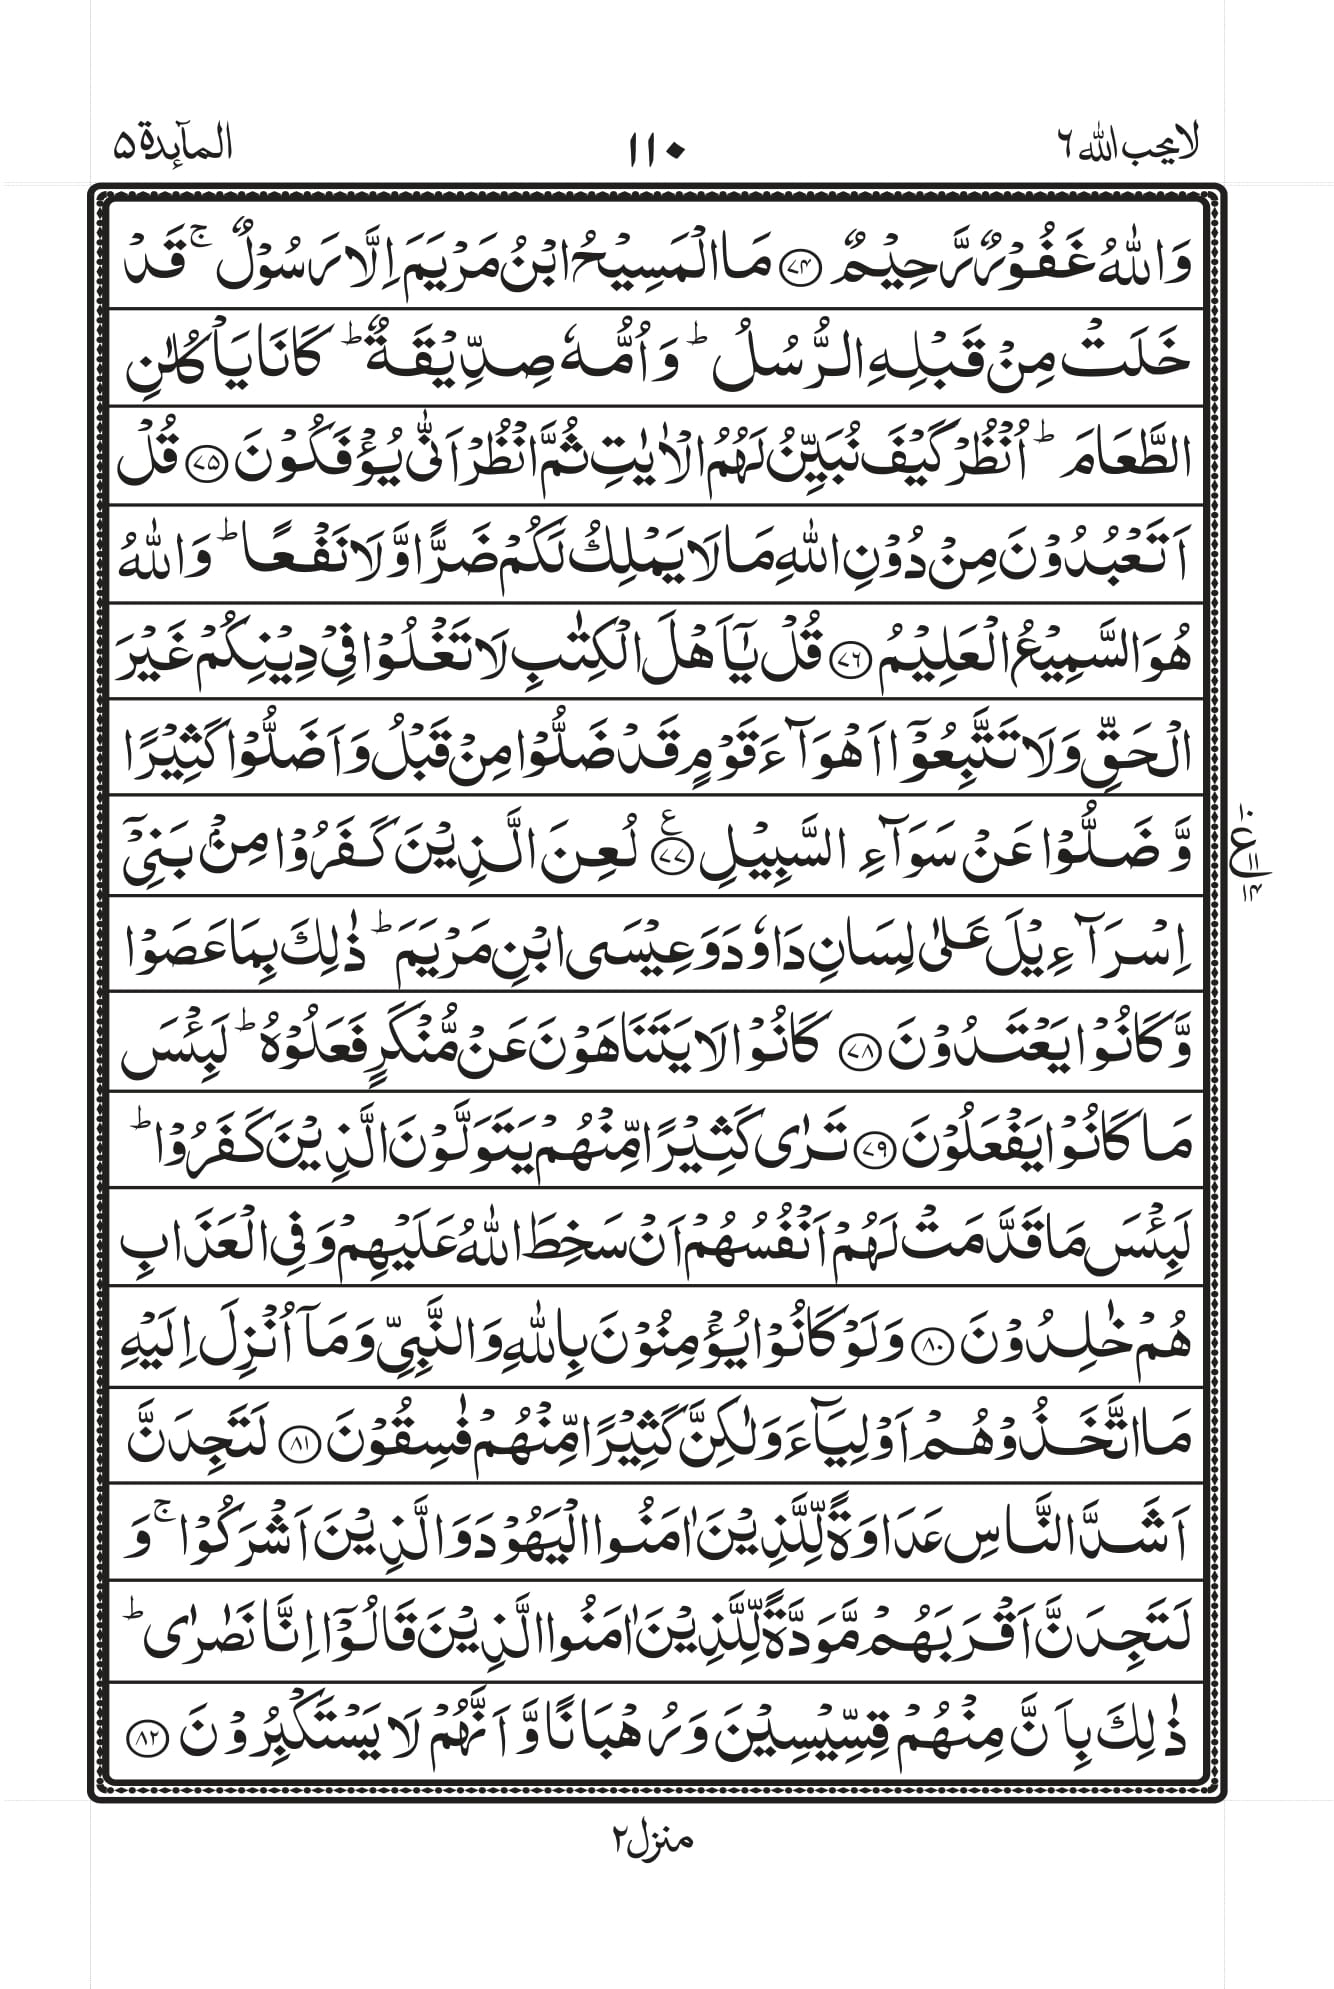 لا یحب اللہ ۶
۱۱۰
المآىِٕدة ۵
وَاللّٰهُ غَفُوْرٌ رَّحِیْمٌ ﴿۷۴﴾ مَا الْمَسِیْحُ ابْنُ مَرْیَمَ اِلَّا رَسُوْلٌ ۚ قَدْ
خَلَتْ مِنْ قَبْلِهِ الرُّسُلُ ؕ وَ اُمُّهٗ صِدِّیْقَةٌ ؕ كَانَا یَاْكُلٰنِ
الطَّعَامَ ؕ اُنْظُرْ كَیْفَ نُبَیِّنُ لَهُمُ الْاٰیٰتِ ثُمَّ انْظُرْ اَنّٰی یُؤْفَكُوْنَ ﴿۷۵﴾ قُلْ
اَتَعْبُدُوْنَ مِنْ دُوْنِ اللّٰهِ مَا لَا یَمْلِكُ لَكُمْ ضَرًّا وَّ لَا نَفْعًا ؕ وَ اللّٰهُ
هُوَ السَّمِیْعُ الْعَلِیْمُ ﴿۷۶﴾ قُلْ یٰۤاَهْلَ الْكِتٰبِ لَا تَغْلُوْا فِیْ دِیْنِكُمْ غَیْرَ
الْحَقِّ وَ لَا تَتَّبِعُوْۤا اَهْوَآءَ قَوْمٍ قَدْ ضَلُّوْا مِنْ قَبْلُ وَ اَضَلُّوْا كَثِیْرًا
وَّ ضَلُّوْا عَنْ سَوَآءِ السَّبِیْلِ ﴿۷۷﴾ ع لُعِنَ الَّذِیْنَ كَفَرُوْا مِنْۢ بَنِیْۤ
ع ۱۰ ۱۱ ۱۴
اِسْرَآءِیْلَ عَلٰی لِسَانِ دَاوٗدَ وَ عِیْسَی ابْنِ مَرْیَمَ ؕ ذٰلِكَ بِمَا عَصَوْا
وَّ كَانُوْا یَعْتَدُوْنَ ﴿۷۸﴾ كَانُوْا لَا یَتَنَاهَوْنَ عَنْ مُّنْكَرٍ فَعَلُوْهُ ؕ لَبِئْسَ
مَا كَانُوْا یَفْعَلُوْنَ ﴿۷۹﴾ تَرٰی كَثِیْرًا مِّنْهُمْ یَتَوَلَّوْنَ الَّذِیْنَ كَفَرُوْا ؕ
لَبِئْسَ مَا قَدَّمَتْ لَهُمْ اَنْفُسُهُمْ اَنْ سَخِطَ اللّٰهُ عَلَیْهِمْ وَ فِی الْعَذَابِ
هُمْ خٰلِدُوْنَ ﴿۸۰﴾ وَ لَوْ كَانُوْا یُؤْمِنُوْنَ بِاللّٰهِ وَ النَّبِیِّ وَ مَاۤ اُنْزِلَ اِلَیْهِ
مَا اتَّخَذُوْهُمْ اَوْلِیَآءَ وَ لٰكِنَّ كَثِیْرًا مِّنْهُمْ فٰسِقُوْنَ ﴿۸۱﴾ لَتَجِدَنَّ
اَشَدَّ النَّاسِ عَدَاوَةً لِّلَّذِیْنَ اٰمَنُوا الْیَهُوْدَ وَ الَّذِیْنَ اَشْرَكُوْا ۚ وَ
لَتَجِدَنَّ اَقْرَبَهُمْ مَّوَدَّةً لِّلَّذِیْنَ اٰمَنُوا الَّذِیْنَ قَالُوْۤا اِنَّا نَصٰرٰی ؕ
ذٰلِكَ بِاَنَّ مِنْهُمْ قِسِّیْسِیْنَ وَ رُهْبَانًا وَّ اَنَّهُمْ لَا یَسْتَكْبِرُوْنَ ﴿۸۲﴾
منزل ۲